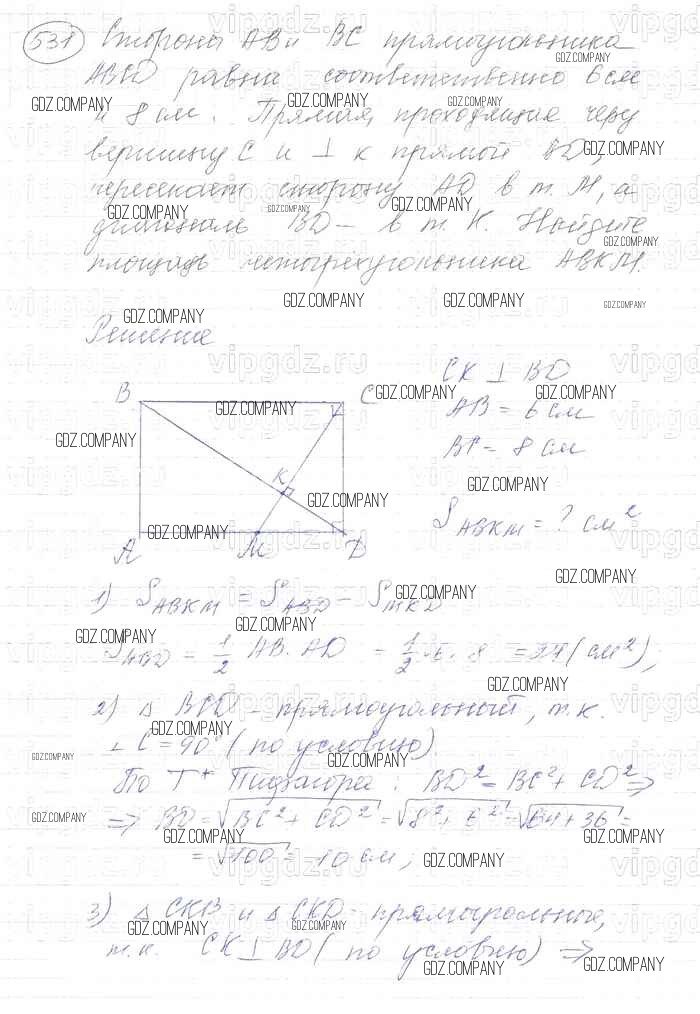 531 Стороны AB и BC прямоугольника
ABCD равны соответственно 6 см
и 8 см. Прямая, проходящая через
вершину C и ⊥ к прямой BD,
пересекает сторону AD в т. M, а
диагональ BD – в т. K. Найдите
площадь четырехугольника ABKM.
Решение
CK ⊥ BD
AB = 6 см
BC = 8 см
S ABKM = ? см²
B
C
K
A
M
D
1) S ABKM = S ABD – S MKD
S ABD = 1/2 AB · AD = 1/2 · 6 · 8 = 24 (см²);
2) △ BCD – прямоугольный, т.к.
∠C = 90° (по условию).
По Т* Пифагора: BD² = BC² + CD² ⇒
⇒ BD = √BC² + CD² = √8² + 6² = √64 + 36 =
= √100 = 10 см;
3) △ CKB и △ CKD – прямоугольные,
т.к. CK ⊥ BD (по условию) ⇒
GDZ.COMPANY
vipgdz.ru